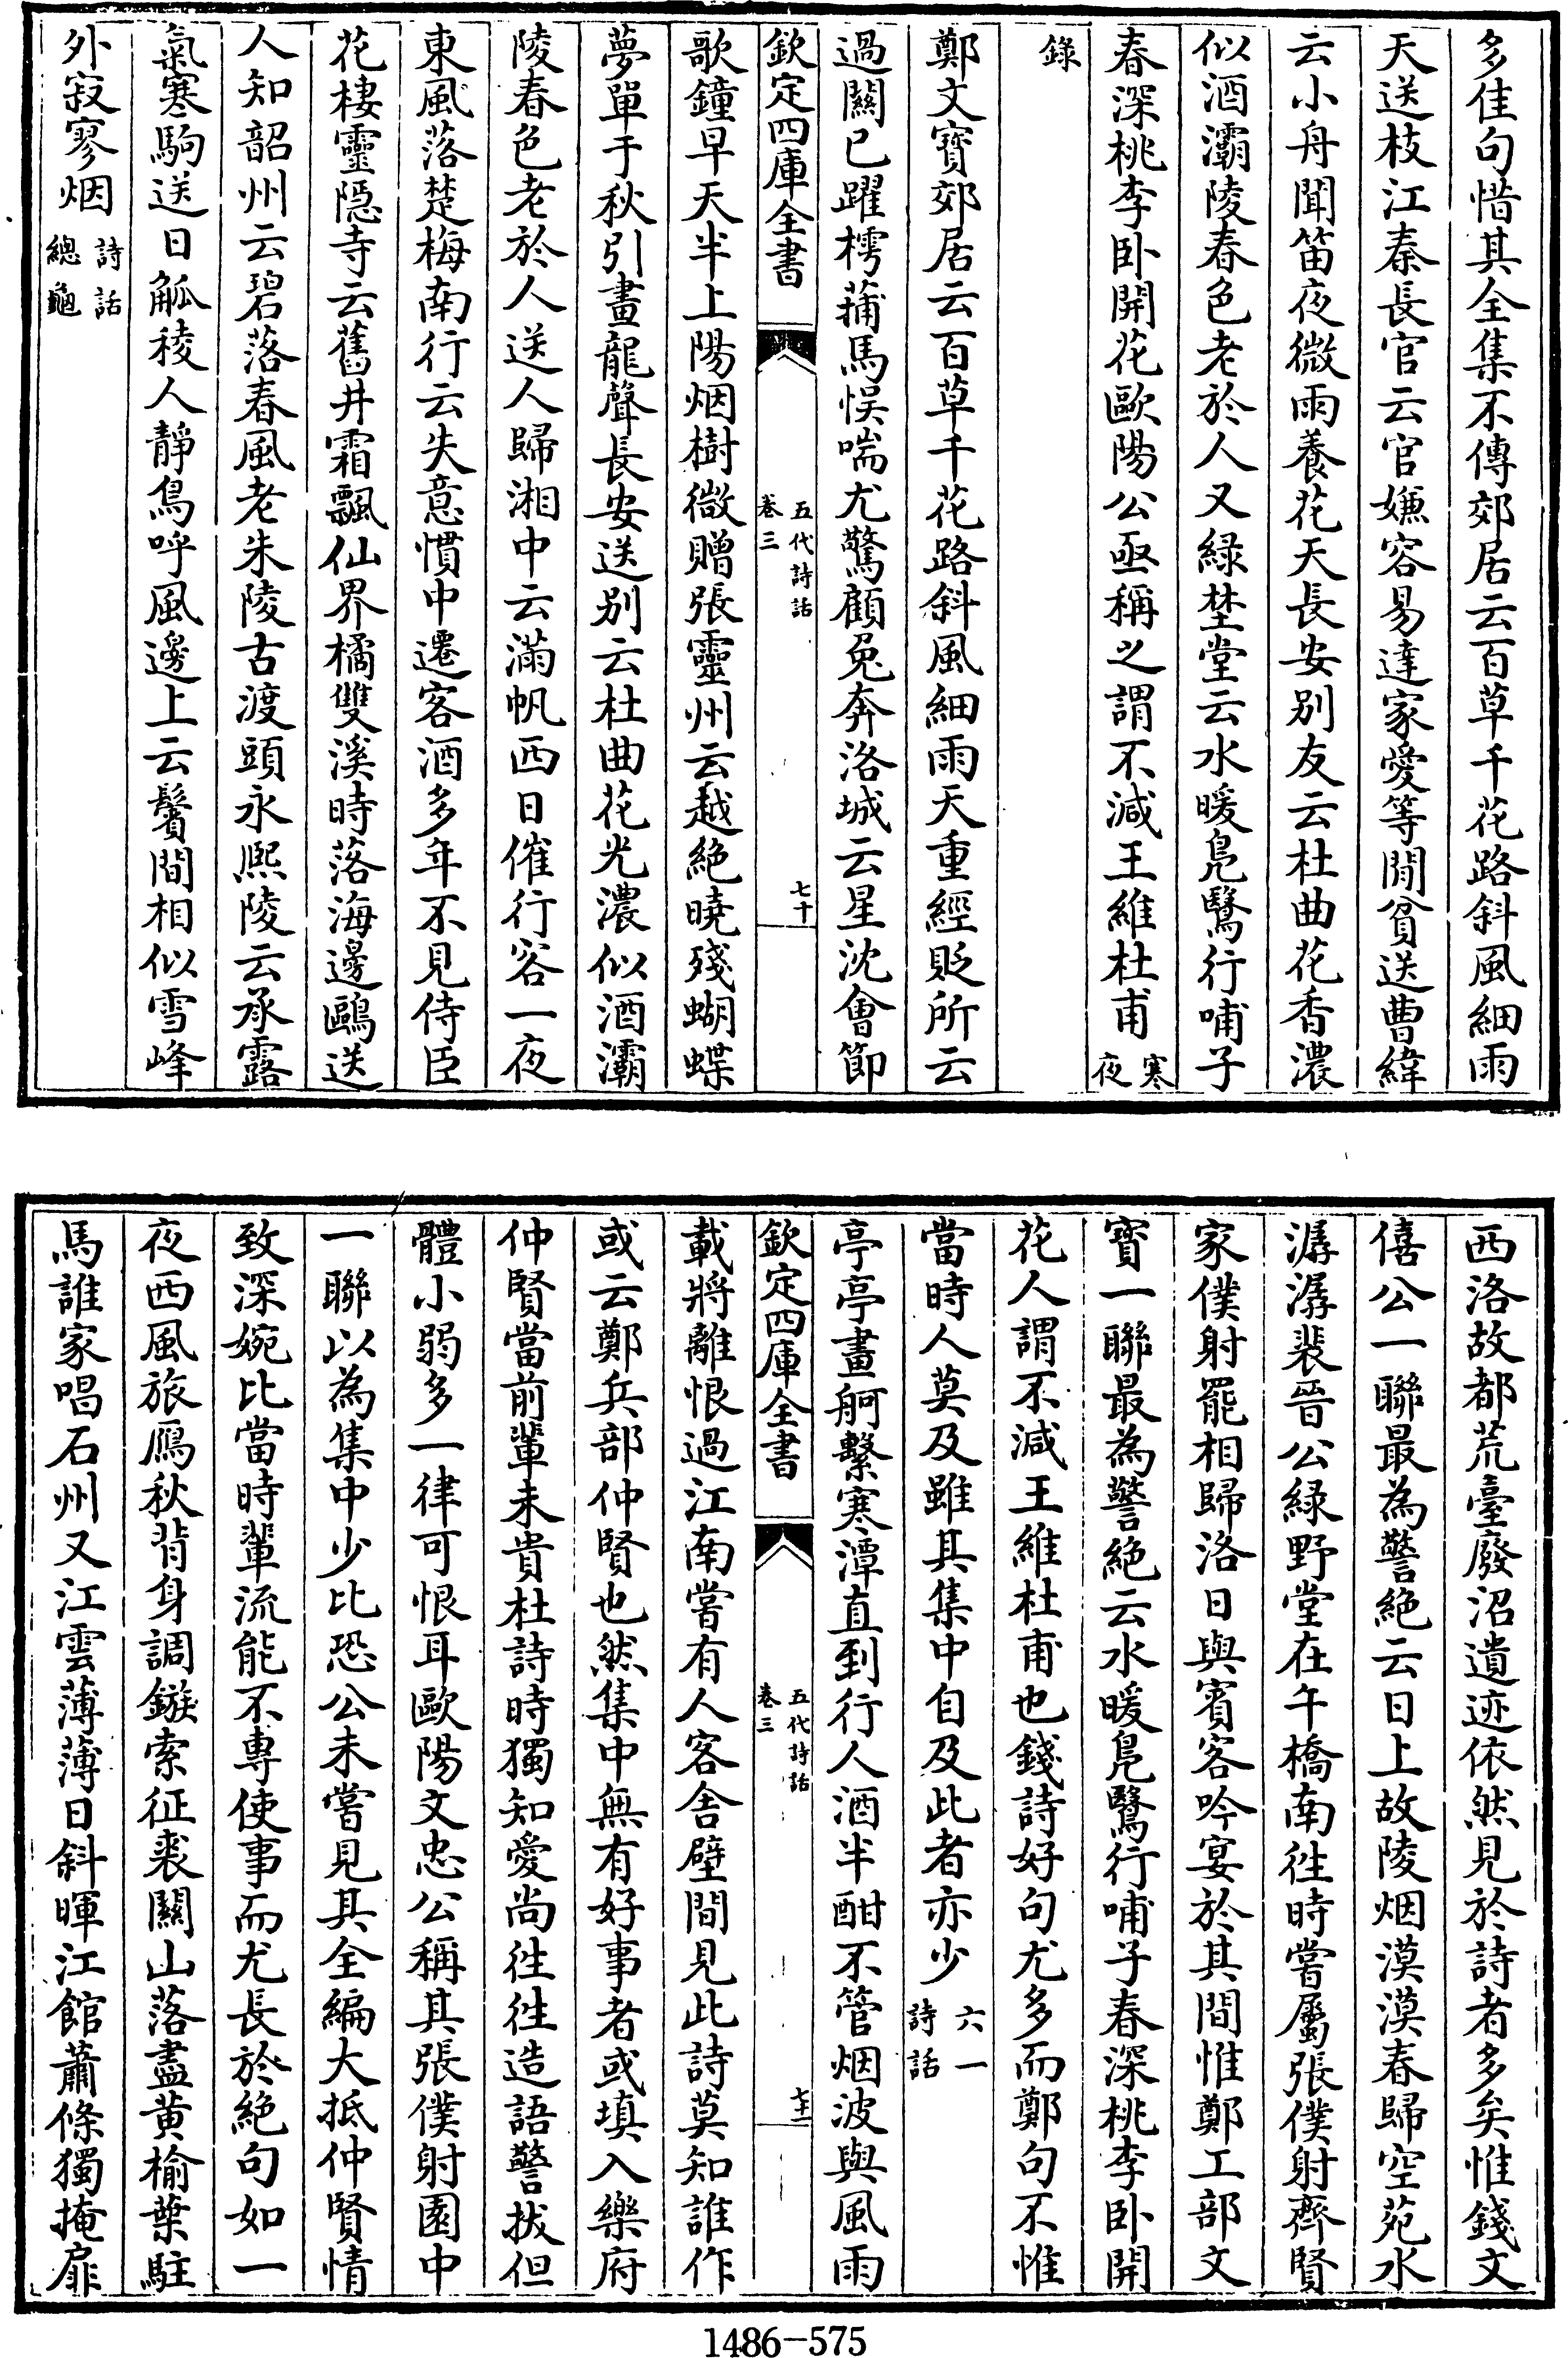 多佳句惜其全集不傳郊居云百草千花路斜風細雨
天送枝江秦長官云官嫌容易達家愛等閒貧送曹緯
云小舟聞笛夜微雨養花天長安别友云杜曲花香濃
似酒灞陵春色老於人又緑埜堂云水暖鳬鷖行哺子
春深桃李卧開花歐陽公亟稱之謂不減王維杜甫寒夜
錄
鄭文寳郊居云百草千花路斜風細雨天重經貶所云
過關已躍樗蒱馬悮喘尤驚顧兔奔洛城云星沈會節
欽定四庫全書
五代詩話
卷三
七十
歌鐘早天半上陽烟樹微贈張靈州云越絶曉殘蝴蝶
夢單于秋引畫龍聲長安送别云杜曲花光濃似酒灞
陵春色老於人送人歸湘中云滿帆西日催行客一夜
東風落楚梅南行云失意慣中遷客酒多年不見侍臣
花棲靈隱寺云舊井霜飄仙界橘雙溪時落海邊鷗送
人知韶州云碧落春風老朱陵古渡頭永熙陵云承露
氣寒駒送日觚稜人靜鳥呼風邊上云鬢間相似雪峰
外寂寥烟詩話總龜
西洛故都荒臺廢沼遺迹依然見於詩者多矣惟錢文
僖公一聯最為警絶云日上故陵烟漠漠春歸空苑水
潺潺裴晉公緑野堂在午橋南徃時嘗屬張僕射齊賢
家僕射罷相歸洛日與賓客吟宴於其間惟鄭工部文
寳一聯最為警絶云水暖鳬鷖行哺子春深桃李卧開
花人謂不減王維杜甫也錢詩好句尤多而鄭句不惟
當時人莫及雖其集中自及此者亦少六一詩話
亭亭畫舸繫寒潭直到行人酒半酣不管烟波與風雨
欽定四庫全書
五代詩話
卷三
七十一
載將離恨過江南嘗有人客舍壁間見此詩莫知誰作
或云鄭兵部仲賢也然集中無有好事者或填入樂府
仲賢當前輩未貴杜詩時獨知愛尚徃徃造語警拔但
體小弱多一律可恨耳歐陽文忠公稱其張僕射園中
一聯以為集中少比恐公未嘗見其全編大抵仲賢情
致深婉比當時輩流能不專使事而尤長於絶句如一
夜西風旅鴈秋背身調鏃索征裘關山落盡黄榆葉駐
馬誰家唱石州又江雲薄薄日斜暉江館蕭條獨掩扉
1486-575